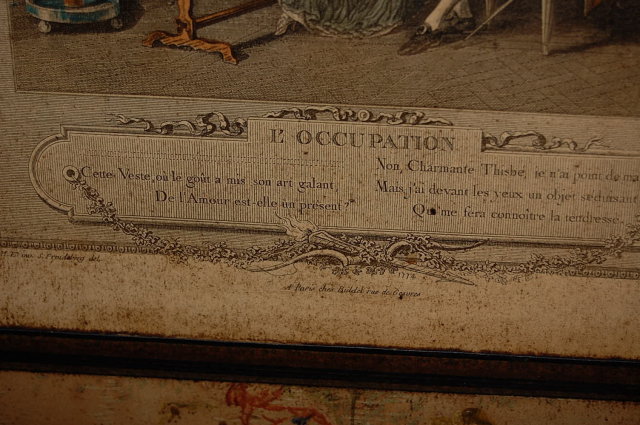 L'OCCUPATION
Cette Veste, où le goût a mis son art galant,
De l'Amour est-elle un présent?
Non, Charmante Thisbe, je n'ai point de
Mais j'ai devant les yeux un objet séduisant
Qui me fera connoître la tendresse.
S. Freudeberg del.
A Paris chez Buldet rue de Gesvres